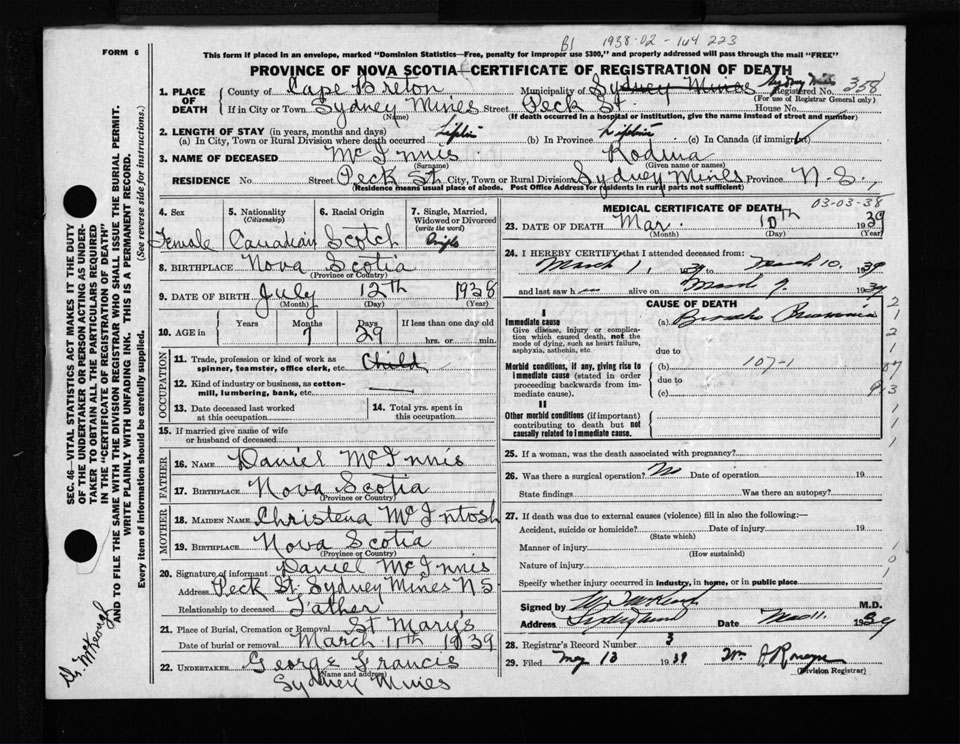 B1 1938-02-164 223
FORM 6
This form if placed in an envelope, marked "Dominion Statistics—Free, penalty for improper use $300," and properly addressed will pass through the mail "FREE"
PROVINCE OF NOVA SCOTIA—CERTIFICATE OF REGISTRATION OF DEATH
1. PLACE OF DEATH County of Cape Breton Municipality of Sydney Mines Sydney Mines Registered No. 358
(For use of Registrar General only)
If in City or Town Sydney Mines Street Peck St. House No.
(Name) (If death occurred in a hospital or institution, give the name instead of street and number)
2. LENGTH OF STAY (in years, months and days)
(a) In City, Town or Rural Division where death occurred Lifetime (b) In Province Lifetime (c) In Canada (if immigrant)
3. NAME OF DECEASED McInnis Rodina
(Surname) (Given name or names)
RESIDENCE No. Street Peck St. City, Town or Rural Division Sydney Mines Province N.S.,
(Residence means usual place of abode. Post Office Address for residents in rural parts not sufficient)
4. Sex 5. Nationality 6. Racial Origin 7. Single, Married, Widowed or Divorced
(Citizenship) (write the word)
Female Canadian Scotch Single
8. BIRTHPLACE Nova Scotia
(Province or Country)
9. DATE OF BIRTH July 12th 1938
(Month) (Day) (Year)
10. AGE in Years Months Days If less than one day
7 29 hrs. or min.
OCCUPATION
11. Trade, profession or kind of work as spinner, teamster, office clerk, etc. Child
12. Kind of industry or business, as cotton-mill, lumbering, bank, etc.
13. Date deceased last worked at this occupation
14. Total yrs. spent in this occupation
15. If married give name of wife or husband of deceased
FATHER
16. NAME Daniel McInnis
17. BIRTHPLACE Nova Scotia
(Province or Country)
MOTHER
18. MAIDEN NAME Christena McIntosh
19. BIRTHPLACE Nova Scotia
(Province or Country)
20. Signature of informant Daniel McInnis
Address Peck St. Sydney Mines N S
Relationship to deceased Father
21. Place of Burial, Cremation or Removal St Mary's
Date of burial or removal March 11th 1939
22. UNDERTAKER George Francis
(Name and address)
Sydney Mines
MEDICAL CERTIFICATE OF DEATH 03-03-38
23. DATE OF DEATH Mar. 10th 1939
(Month) (Day) (Year)
24. I HEREBY CERTIFY that I attended deceased from:
March 1, 1939 to March 10, 1939
and last saw h alive on March 9. 1939
CAUSE OF DEATH
I
Immediate cause (a) Broncho Pneumonia
Give disease, injury or complication which caused death, not the mode of dying, such as heart failure, asphyxia, asthenia, etc
due to
Morbid conditions, if any, giving rise to immediate cause (stated in order proceeding backwards from immediate cause).
(b) 107-1
due to
(c)
II
Other morbid conditions (if important) contributing to death but not causally related to immediate cause.
25. If a woman, was the death associated with pregnancy?
26. Was there a surgical operation? No Date of operation 19
State findings Was there an autopsy?
27. If death was due to external causes (violence) fill in also the following:—
Accident, suicide or homicide? Date of injury 19
(State which)
Manner of injury
(How sustained)
Nature of injury
Specify whether injury occurred in industry, in home, or in public place
Signed by M.D.
Address Sydney Mines Date Mar 11. 1939
28. Registrar's Record Number 3
29. Filed 13 1939 Wm
(Division Registrar)
SEC. 46—VITAL STATISTICS ACT MAKES IT THE DUTY
OF THE UNDERTAKER OR PERSON ACTING AS UNDER-
TAKER TO OBTAIN ALL THE PARTICULARS REQUIRED
IN THE "CERTIFICATE OF REGISTRATION OF DEATH"
AND TO FILE THE SAME WITH THE DIVISION REGISTRAR WHO SHALL ISSUE THE BURIAL PERMIT.
WRITE PLAINLY WITH UNFADING INK. THIS IS A PERMANENT RECORD.
Every item of Information should be carefully supplied. (See reverse side for instructions.)
Dr. McKeough